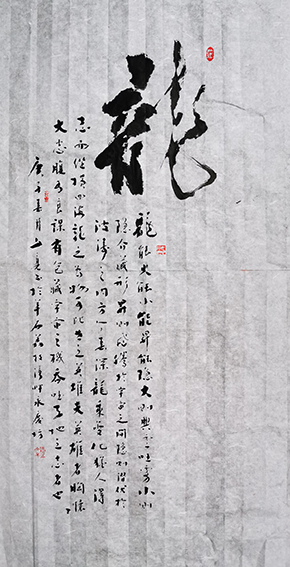 龍
龍能大能小能昇能隱大則興雲吐雾小則
隱介藏形昇則飛騰於宇宙之間隱則潛伏於
波濤之内方今春深龍乘变化猶人得
志而縱橫四海龍之為物可比世之英雄夫英雄者胸懷
大志腹有良謀有包藏宇宙之機吞吐天地之志者也
庚子春月